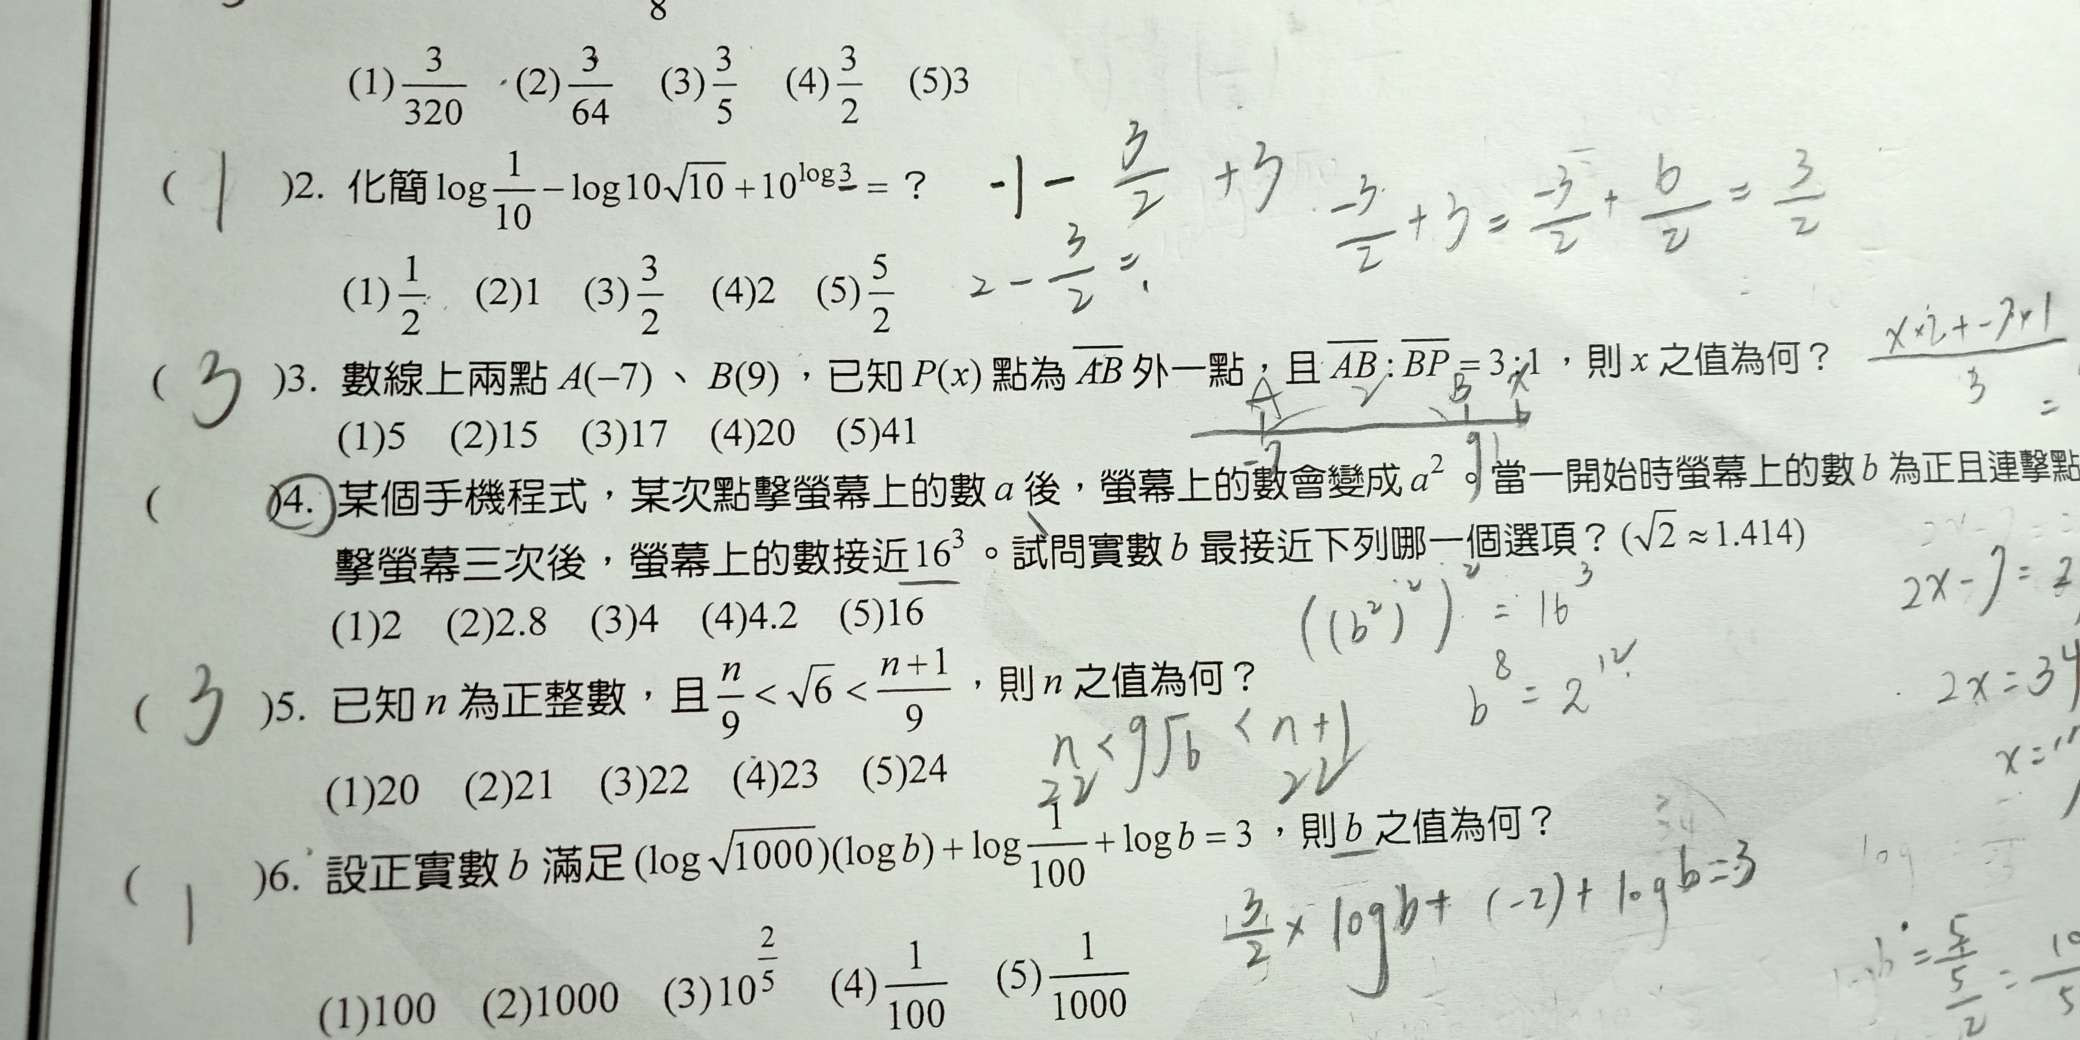 8
(1) 3/320 (2) 3/64 (3) 3/5 (4) 3/2 (5)3
( 1 )2. 化簡 log 1/10 − log10√10 + 10^log3 = ？ -1 - 3/2 + 3
-3/2 + 3 = -3/2 + 6/2 = 3/2
(1) 1/2 (2)1 (3) 3/2 (4)2 (5) 5/2
2 - 3/2 =
( 3 )3. 數線上兩點 A(−7)、B(9)，已知 P(x) 點為 AB 外一點，且 AB : BP = 3:1，則 x 之值為何？
(1)5 (2)15 (3)17 (4)20 (5)41
A 2 B x
-7 9
x×2+-7×1 / 3 =
( )4. 某個手機程式，某次點擊螢幕上的數 a 後，螢幕上的數會變成 a²。當一開始時螢幕上的數 b 為正且連擊點
擊螢幕三次後，螢幕上的數接近 16³。試問實數 b 最接近下列哪一個選項？(√2 ≈ 1.414)
(1)2 (2)2.8 (3)4 (4)4.2 (5)16
((b²)²)² = 16³
b⁸ = 2¹²
2x-7=2
2x=34
x=17
( 3 )5. 已知 n 為正整數，且 n/9 < √6 < n+1/9，則 n 之值為何？
(1)20 (2)21 (3)22 (4)23 (5)24
n < 9√6 < n+1
22 22
( 1 )6. 設正實數 b 滿足 (log√1000)(log b) + log 1/100 + log b = 3，則 b 之值為何？
3/2 × log b + (-2) + log b = 3
(1)100 (2)1000 (3)10^2/5 (4) 1/100 (5) 1/1000
= 5 / 5/2 = 10/5